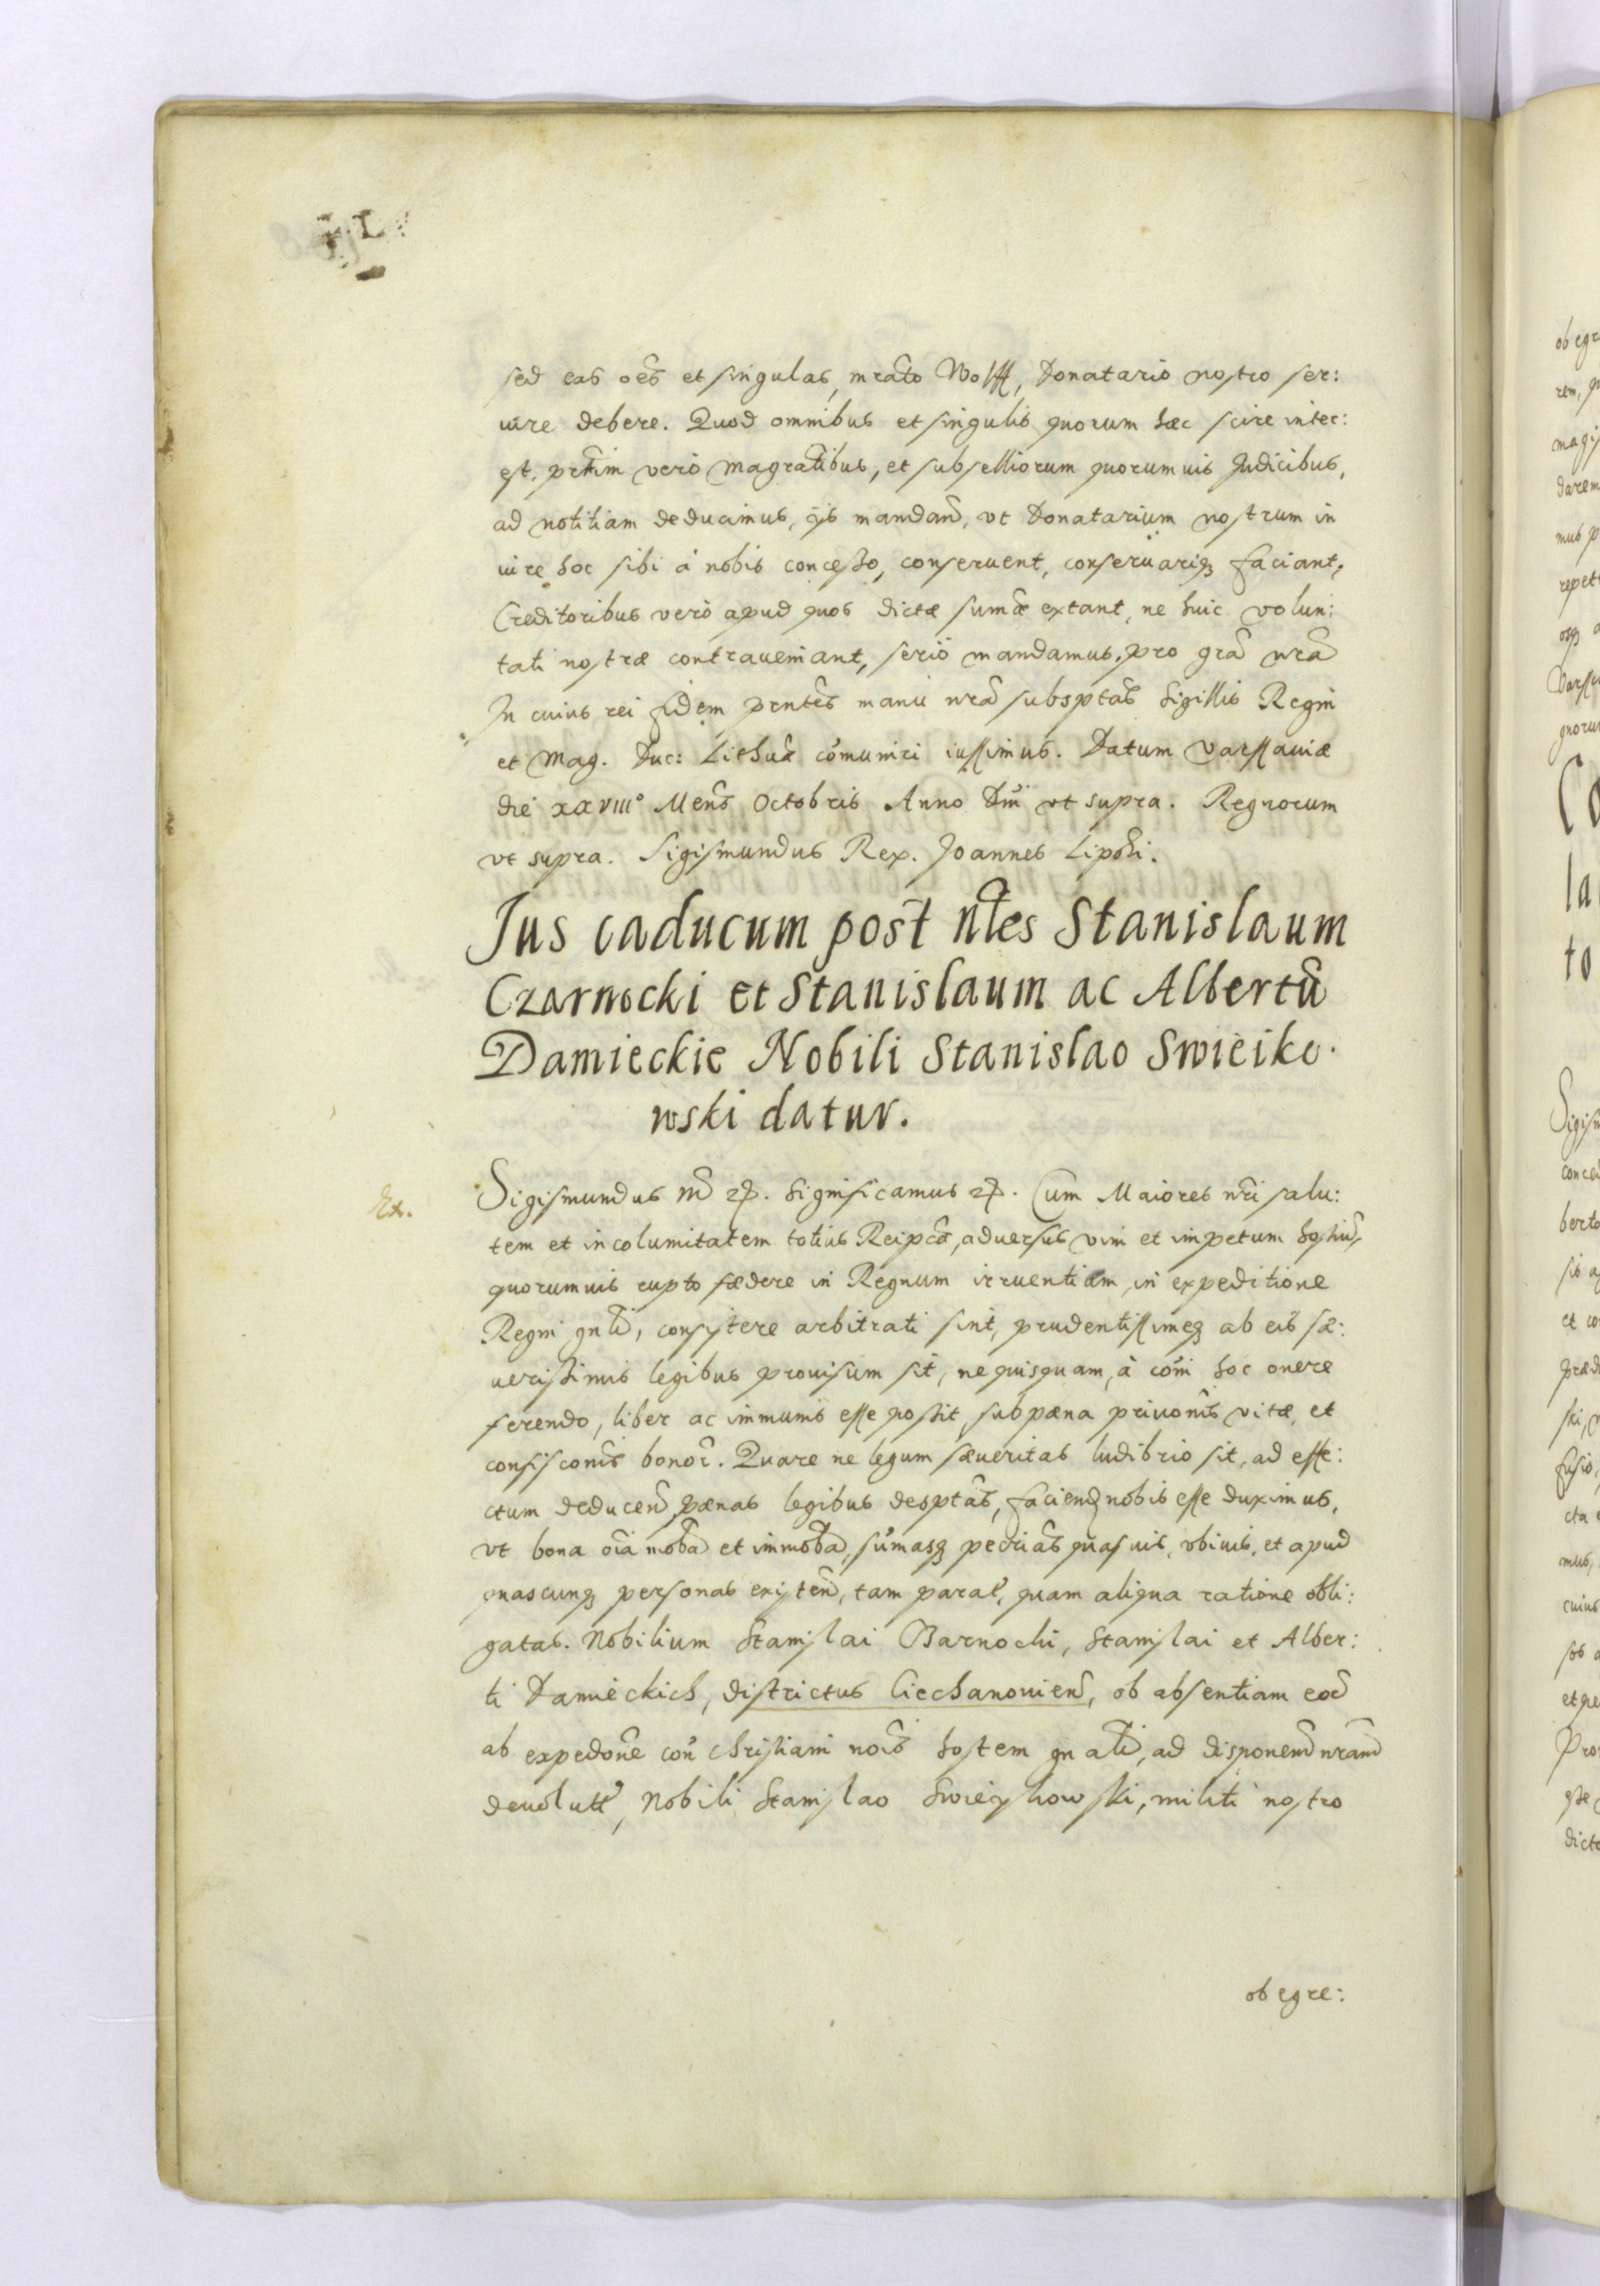 sed eas oẽs et singulas, mrato Wolff, Donatario nostro ser:
uire debere. Quod omnibus et singulis quorum hæc scire inter:
est. prtim verò Magratibus, et subselliorum quorumuis Judicibus,
ad notitiam deducimus, ijs mandañ, vt Donatarium nostrum in
iure hoc sibi à nobis concesso, conseruent, conseruariq; faciant,
Creditoribus verò apud quos dictæ sumæ extant, ne huic volun:
tati nostræ contraueniant, seriò mandamus, pro gra nra
In cuius rei fidem pntes manu nra subsptas Sigillis Regni
et Mag. Duc: Lithuæ comuniri iussimus. Datum Varssauiæ
die XXVIIIº Mens Octobris Anno Dni vt supra. Regnorum
vt supra. Sigismundus Rex. Joannes Lipski.
Jus caducum post Nles Stanislaum
Czarnocki et Stanislaum ac Albertũ
Damieckie Nobili Stanislao Swieiko.
wski datur.
Ex.
Sigismundus III etc. Significamus etc. Cum Maiores nri salu:
tem et incolumitatem totius Reipcæ, aduersus vim et impetum hostiũ,
quorumuis rupto fœdere in Regnum irruentiam, in expeditione
Regni gnli, consistere arbitrati sint, prudentissimeq; ab eis sæ:
uerissimis legibus prouisum sit, ne quisquam, à comi hoc onere
ferendo, liber ac immunis esse possit, sub pæna priuonis vitæ, et
confisconis bonor. Quare ne legum sæueritas ludibrio sit, ad effe:
ctum deducend, pænas legibus desptas, faciend nobis esse duximus,
vt bona oia moba et immoba, sumasq; pecrias quasuis, vbiuis, et apud
quascunq; personas existen, tam parat, quam aliqua ratione obli:
gatas. Nobilium Stanislai Czarnocki, Stanislai et Alber:
ti Damieckich, districtus Ciechanouien, ob absentiam eor
ab expedone con Christiani nois hostem gnali, ad disponend nram
deuolut, Nobili Stanislao Swieykowski, militi nostro
ob egre: